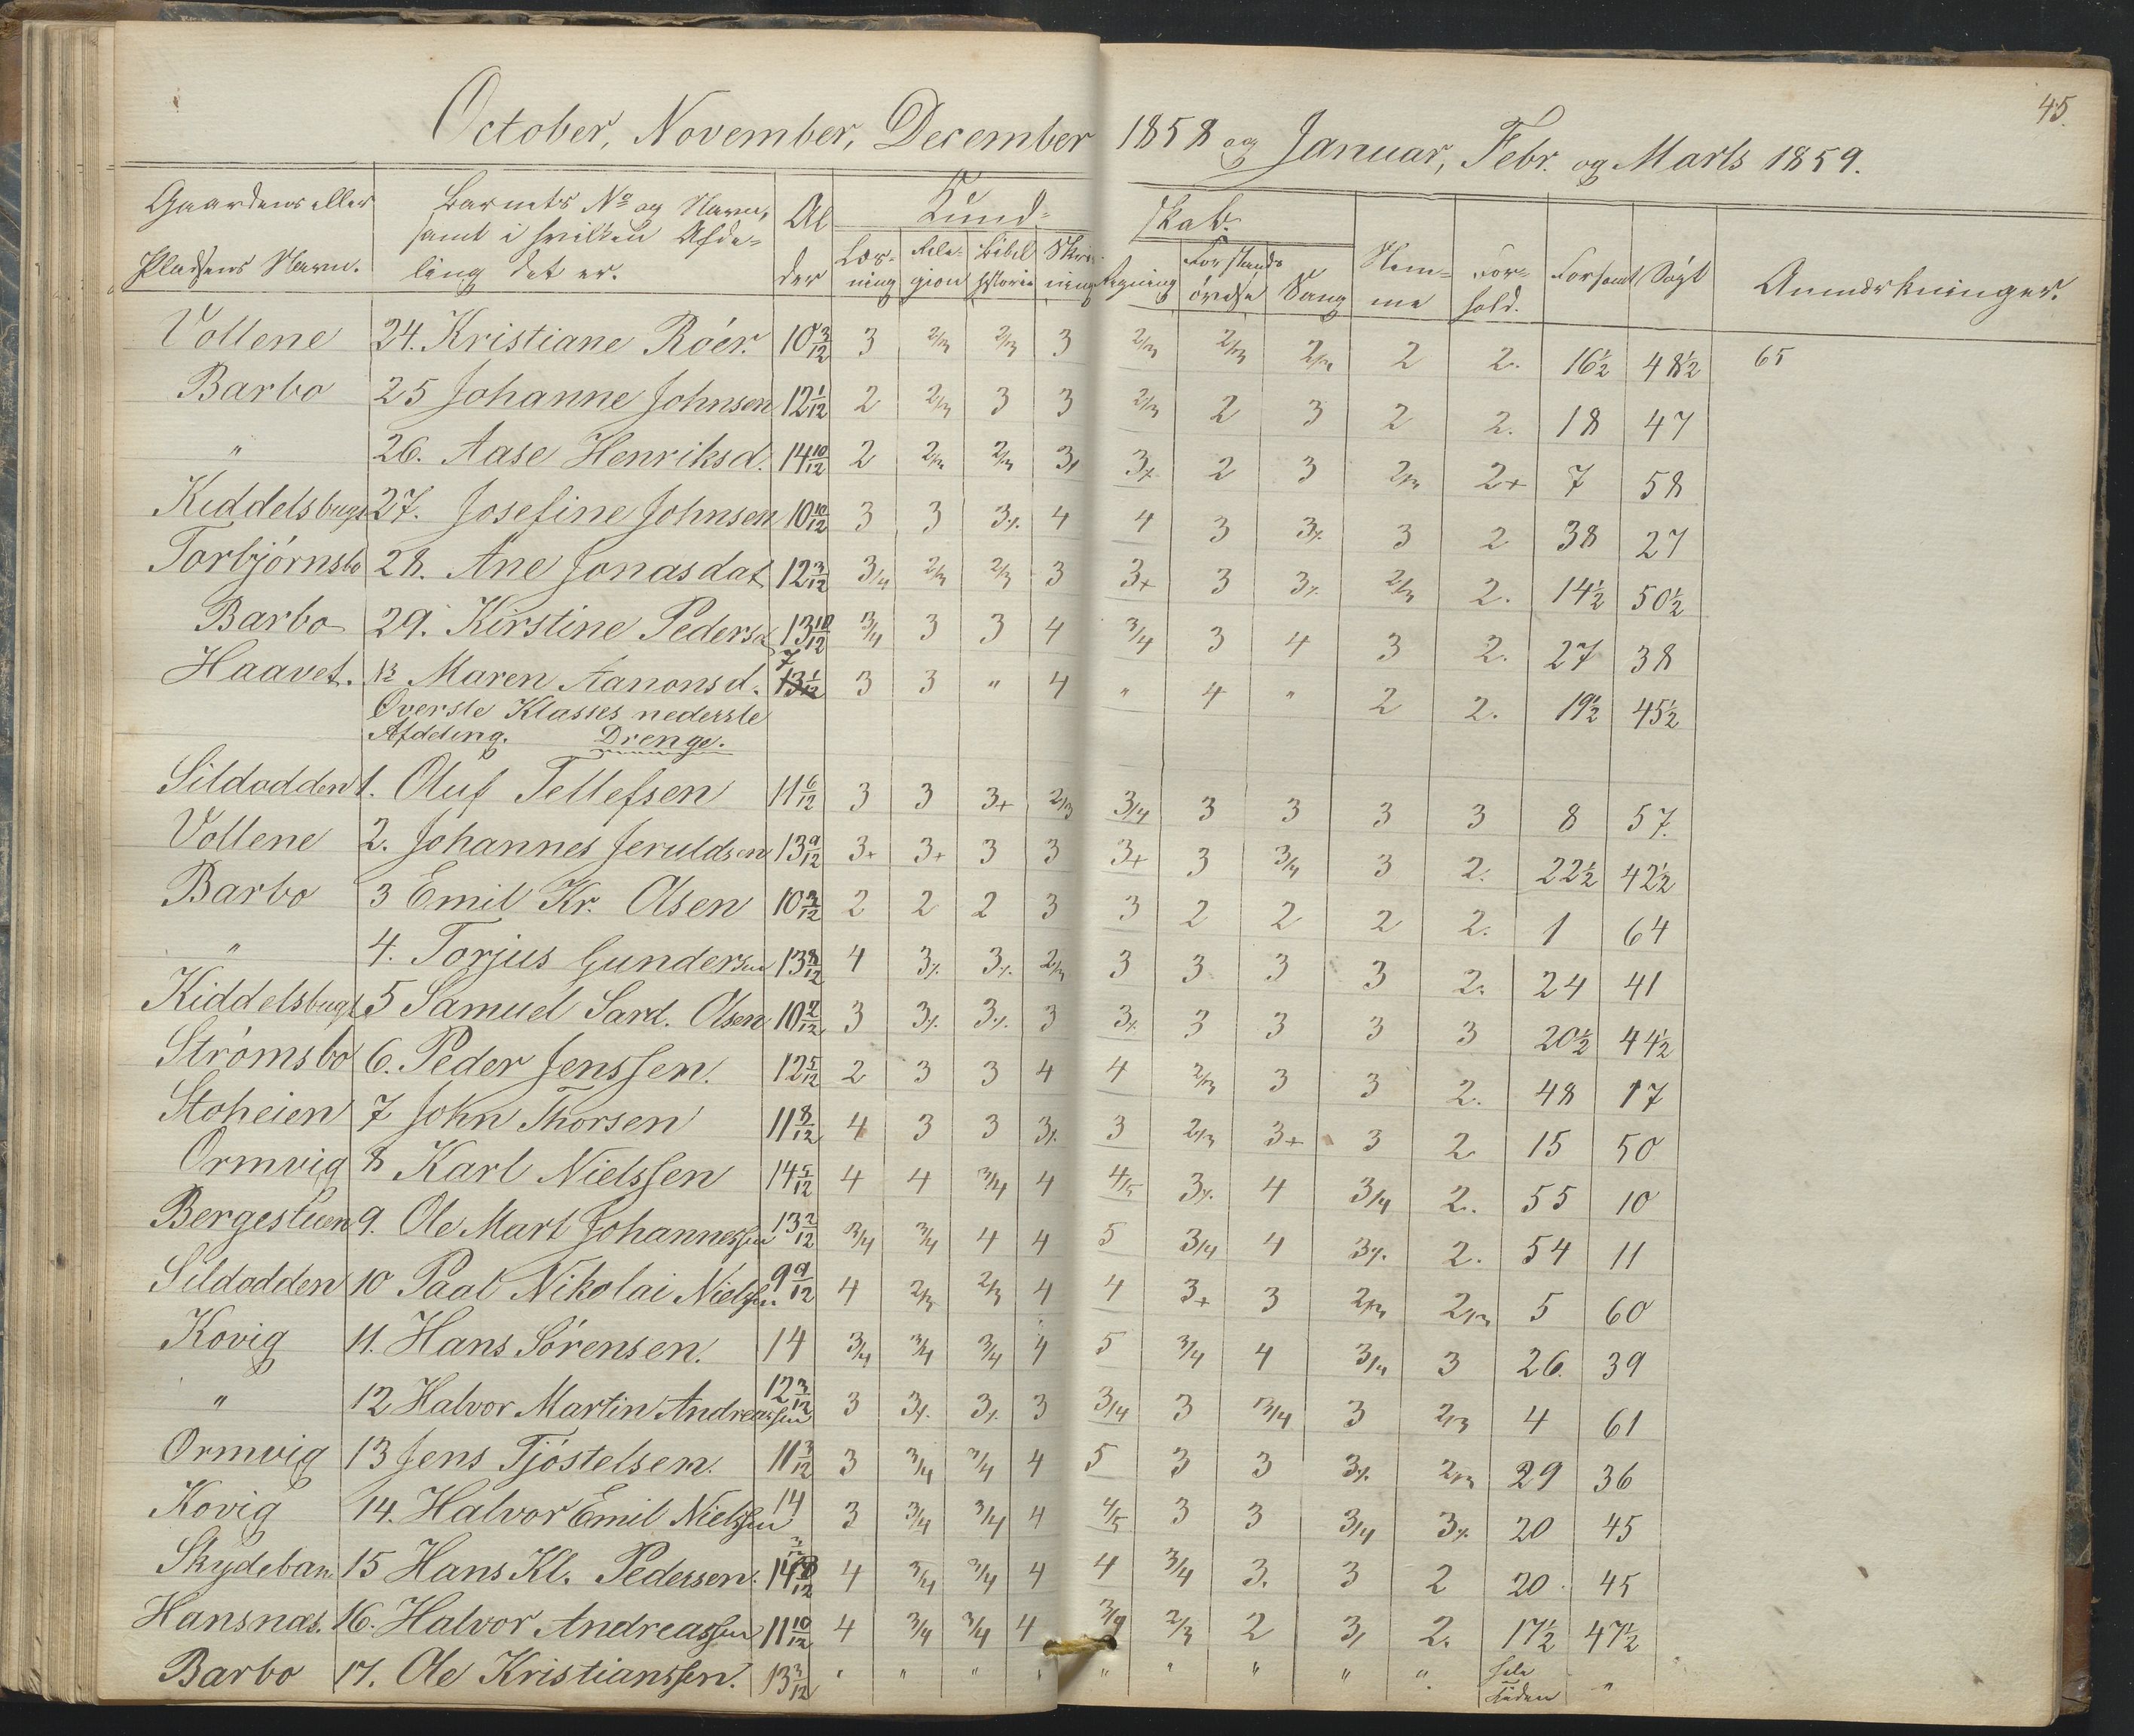 45.
October, November, December 1858 og Januar, Febr. og Marts 1859.
Gaardens eller Pladsens Navn. | Barnets No og Navn, samt i hvilken Afdeling det er. | Alder | Kundskab. | Læsning | Religion | Bibelhistorie | Skrivning | Regning | Forstandsøvelse | Sang | Nemme | Forhold. | Forsømt | Søgt | Anmærkninger.
Vollene 24. Kristiane Röér. 10 3/12 3 2/3 2/3 3 2/3 2/3 2/3 2 2. 16½ 48½ 65
Barbo 25 Johanne Johnsen 12 1/12 2 2/3 3 3 2/3 2 3 2 2. 18 47
" 26. Aase Henriksd. 14 10/12 2 2/3 2/3 3 2 3 2/3 2+ 7 58
Kiddelsbugt 27. Josefine Johnsen 10 10/12 3 3 3 4 4 3 3 3 2 38 27
Torbjörnsbo 28. Ane Jonasdat 12 3/12 3/4 2/3 2/3 3 3+ 3 3 2/3 2. 14½ 50½
Barbo 29. Kirstine Pedersd 13 10/12 3/4 3 3 4 3/4 3 4 3 2. 27 38
Haavet. Maren Aanonsd. 7 3 3 " 4 " 4 " 2 2. 19½ 45½
Överste Klasses nederste
Afdeling. Drenge.
Sildodden 1. Oluf Tellefsen 11 6/12 3 3 3+ 2/3 3/4 3 3 3 3 8 57.
Vollene 2. Johannes Jeruldsen 13 9/12 3+ 3+ 3 3 3+ 3 3/3 3 2. 22½ 42½
Barbo 3 Emil Kr. Olsen 10 3/12 2 2 2 3 3 2 2 2 2. 1 64
" 4. Torjus Gundersen 13 8/12 4 3 3 2/3 3 3 3 3 2. 24 41
Kiddelsbugt 5 Samuel Sard. Olsen 10 2/12 3 3 3 3 3 3 3 3 3 20½ 44½
Strömsbo 6. Peder Jenssen. 12 5/12 2 3 3 4 4 2/3 3 3 2. 48 17
Stoheien 7 John Thorsen 11 8/12 4 3 3 3 3 2/3 3+ 3 2 15 50
Ormvig 8 Karl Nielssen 14 5/12 4 4 3/4 4 4/5 3 4 3/4 2. 55 10
Bergestuen 9. Ole Mart Johannessen 13 2/12 3/4 3/4 4 4 5 3/4 4 3 2. 54 11
Sildodden 10 Paal Nikolai Nielssen 9 9/12 4 2/3 2/3 4 4 3+ 3 2/3 2/3 5 60
Kovig 11. Hans Sörensen. 14 3/4 3/4 3/4 4 5 3/4 4 3/4 3 26. 39
" 12 Halvor Martin Andreassen 12 3/12 3 3 3 3 3/4 3 3/4 3 2/3 4 61
Ormvig 13 Jens Tjöstelsen. 11 3/12 3 3/4 3/4 4 5 3 3 3 2/3 29 36
Kovig 14. Halvor Emil Nielssen 14 3 3/4 3/4 4 4/5 3 3 3/4 3 20 45
Skydeban. 15 Hans Kl. Pedersen. 4 3/4 3/4 4 4 3/4 3. 3 2 20 45
Hansnæs. 16. Halvor Andreassen 11 10/12 4 3/4 3/4 4 2/3 2 3 2. 17½ 47½
Barbo 17. Ole Kristianssen. 13 3/12 " " " " " " " " " hele Tiden "